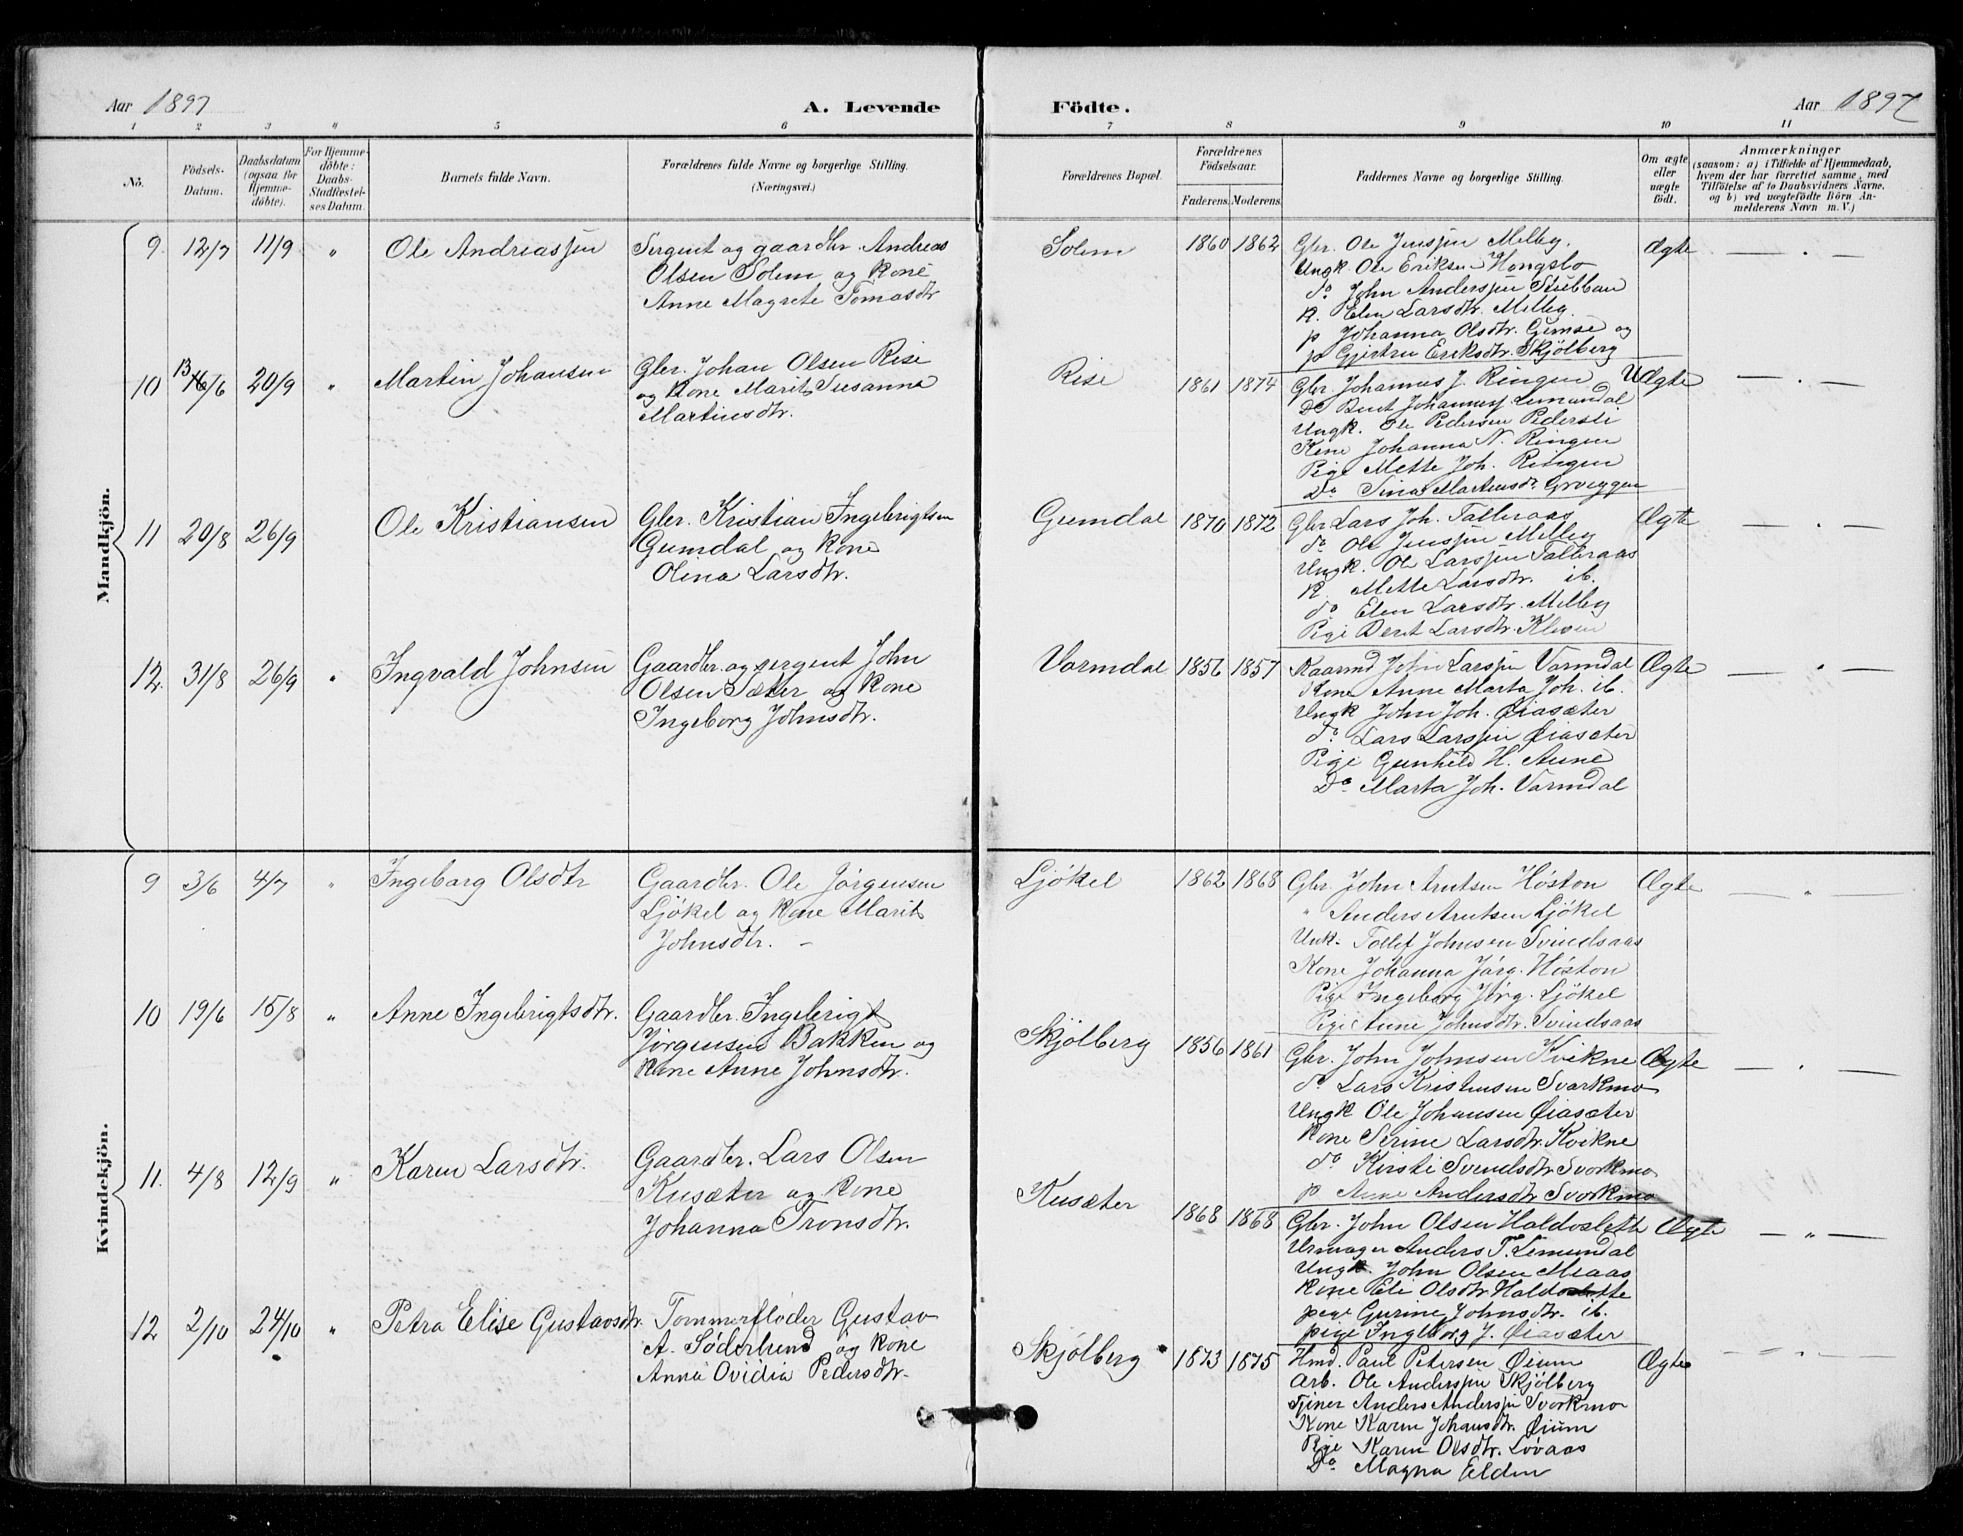 Aar 1897
A. Levende
Födte.
Aar 1897
1 2 3 4 5 6 7 8 9 10 11
No.
Födsels-
Datum.
Daabsdatum
(ogsaa for
Hjemme-
döbte).
For Hjemme-
döbte:
Daabs-
Stadfestel-
ses Datum.
Barnets fulde Navn.
Forældrenes fulde Navne og borgerlige Stilling.
(Næringsvei.)
Forældrenes Bopæl.
Forældrenes
Födselsaar.
Faderens. Moderens.
Faddernes Navne og borgerlige Stilling.
Om ægte
eller
uægte
födt.
Anmærkninger
(saasom: a) i Tilfælde af Hjemmedaab,
hvem der har forrettet samme, med
Tilföielse af to Daabsvidners Navne,
og b) ved uægtefödte Börn An-
melderens Navn m. V.)
Mandkjön.
9. 12/7 11/9 " Ole Andreassen
Sergent og gaardbr. Andreas
Olsen Solem og Kone
Anne Magrete Tomasdtr
Solem 1860 1862
Gbr. Ole Jenssen Melby.
Ungk. Ole Eriksen Hongslo
do. John Anderssen Stubban
K. Elen Larsdtr. Melby.
p Johanna Olsdtr. Gimse og
p Gjertru Eriksdtr. Skjølberg
Ægte — . —
10 13/6 20/9 " Martin Johansen
Gbr. Johan Olsen Rise
og Kone Marit Susanna
Martinsdtr.
Rise 1861 1874
Gbr. Johannes J. Ringen
Do Berit Johannesj Lemundal
Ungk. Ole Pedersen Pedersli
Kone Johanna N. Ringen
Pige Mette Joh. Ringen
Do Sina Martinsd.
UÆgte — . —
11 20/8 26/9 Ole Kristiansen
Gbr. Kristian Ingebrigtsen
Gumdal og Kone
Olina Larsdtr.
Gumdal 1870 1872
Gbr Lars Joh. Talleraas
do Ole Jenssen Melby
Ungk. Ole Larssen Talleraas
K. Mette Larsdtr. ib.
do Elen Larsdtr. Melby
Pige Berit Larsdtr. Kleven
Ægte — . —
12. 31/8 26/9 " Ingvald Johnsen
Gaardbr. og sergent John
Olsen Sæter og Kone
Ingeborg Johnsdtr.
Varmdal 1856 1857
Kaarmd John Larssen Varmdal
Kone Anne Marta Joh. ib.
Ungk John Joh. Øiasæter
do. Lars Larssen Øiasæter
Pige Gunhild H. Aune
Do Marta Joh. Varmdal
Ægte — . —
Kvindekjön.
9 3/6 4/7 " Ingeborg Olsdtr
Gaardbr. Ole Jørgensen
Ljøkel og Kone Marit
Johnsdtr. –
Ljøkel 1862 1868
Gbr. John Arntsen Høston
" Anders Arntsen Ljøkel
Unk. Tollef Johnsen Svindsaas
Kone Johanna Jørg. Høston
Pige Ingeborg Jørg. Ljøkel
Pige Anne Johnsdtr. Svindsaas
Ægte — " —
10 19/6 15/8 " Anne Ingebrigtsdtr.
Gaardbr. Ingebrigt
Jørgensen Bakken og
Kone Anne Johnsdtr.
Skjølberg 1856 1861
Gbr. John Johnsen Kvikne
do Lars Kristensen Svorkmo
Ungk Ole Johansen Øiasæter
Kone Serine Larsdtr. Kvikne
do Kirsti Svendsdtr Svorkmo
p Anne Andersdtr Svorkmo
Ægte — . —
11. 4/8 12/9 " Karen Larsdtr.
Gaardbr. Lars Olsen
Kusæter og Kone
Johanna Tronsdtr.
Kusæter 1868 1868
Gbr. John Olsen Haldoslette
Urmager Anders T. Lemundal
Ungk. John Olsen Meaas
Kone Eli Olsdtr Haldoslette
pige Gurine Johnsdtr. ib.
pige Ingeborg J. Øiasæter
Ægte — " —
12 2/10 24/10 " Petra Elise Gustavsdtr.
Tommerfløder Gustav
A. Søderlund og Kone
Anna Ovidia Pedersdtr.
Skjølberg 1873 1875
Hmd. Paul Petersen Øium
Arb. Ole Anderssen Skjølberg
Tjener Anders Anderssen Svorkmo
Kone Karen Johansdtr. Øium
Pige Karen Olsdtr. Lovaas
Do Magna Elden
Ægte — " —